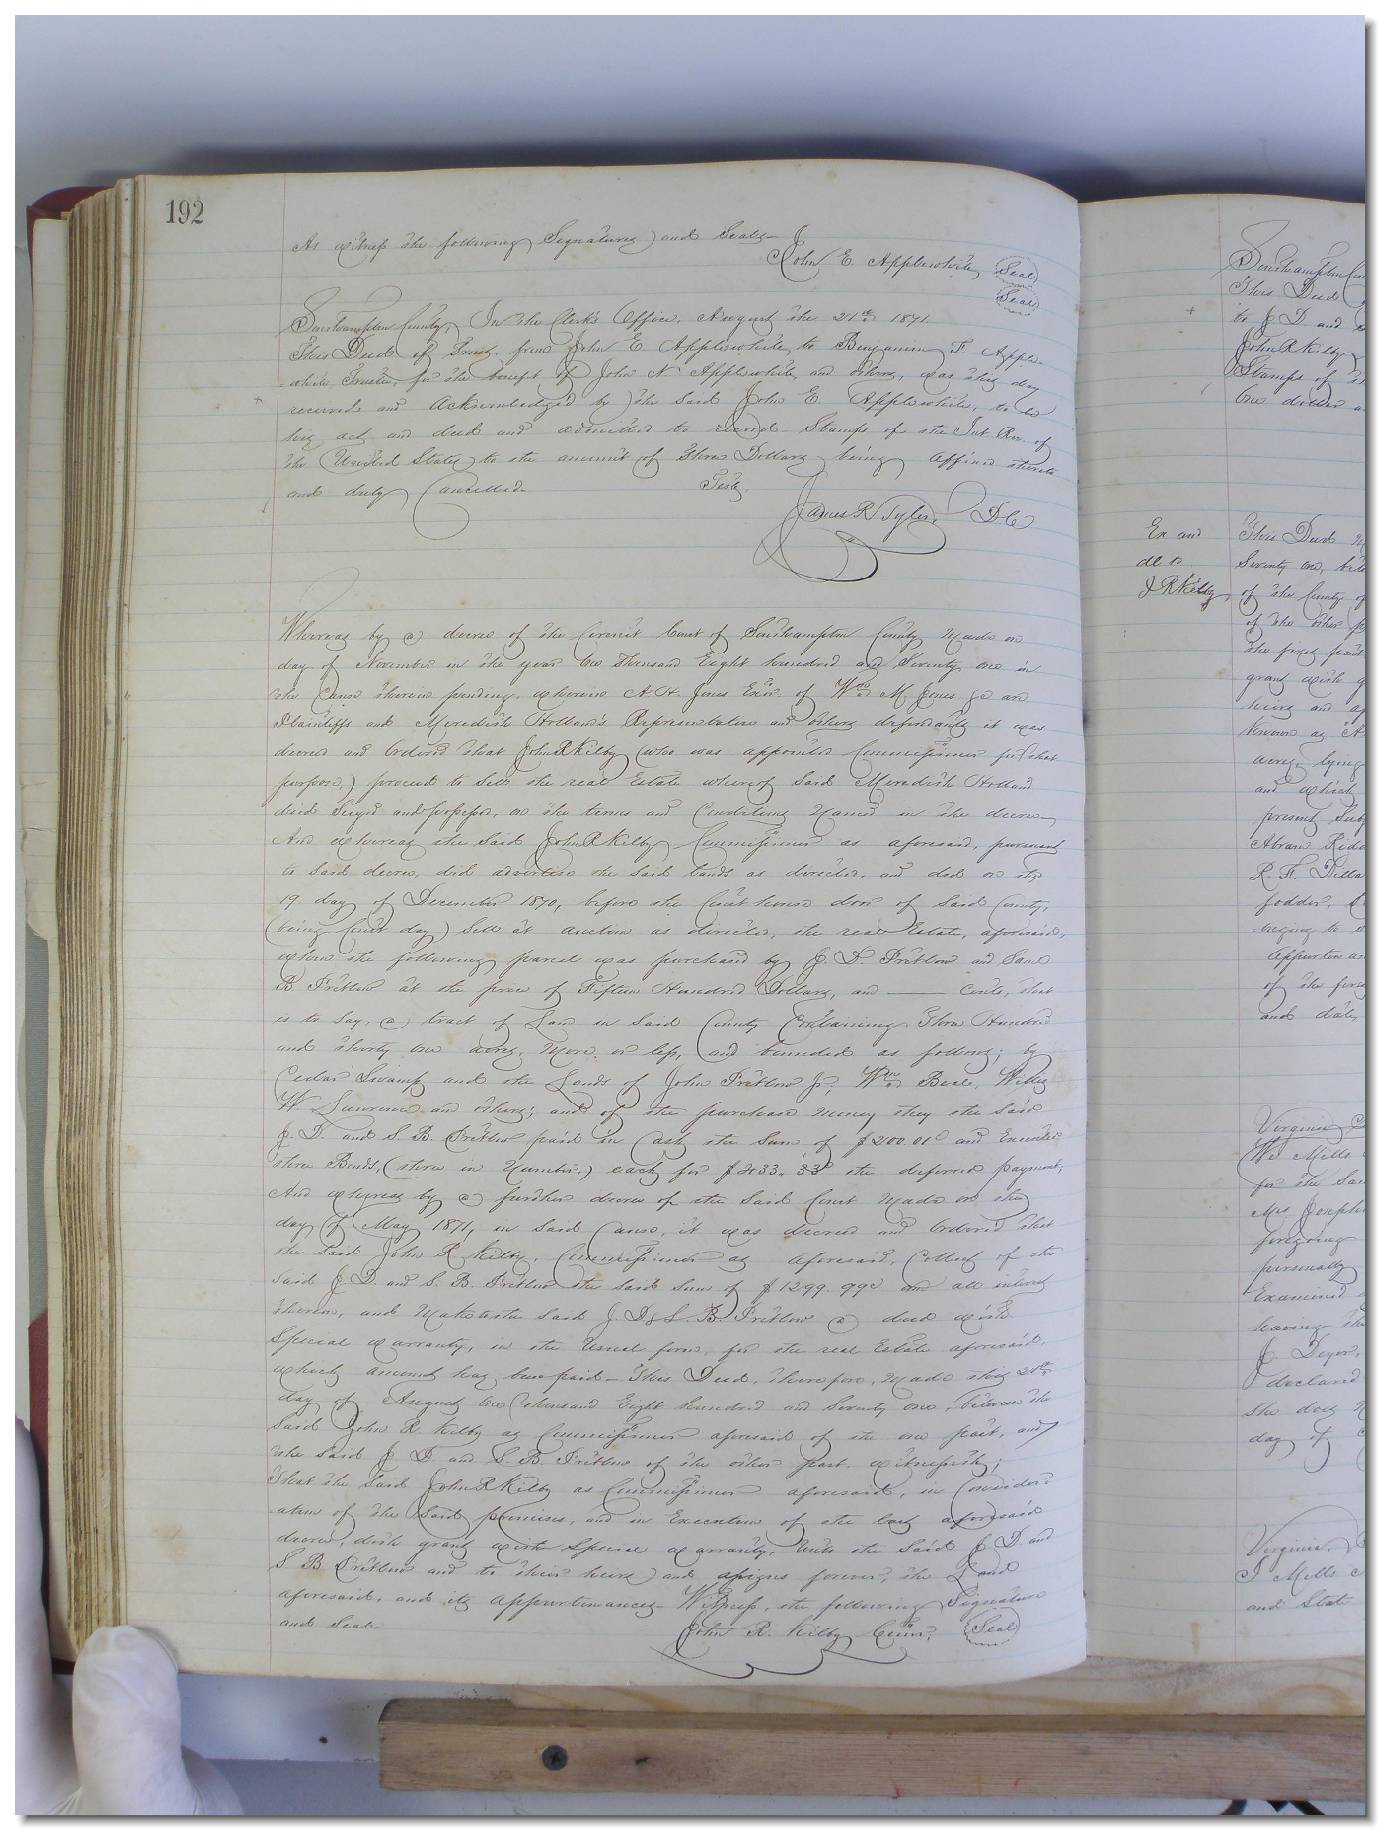 192
As witness the following Signatures and Seals
John E. Applewhite Seal
Seal
Southampton County, In the Clerk's Office, August the 21st 1871.
This Deed of Trust from John E. Applewhite to Benjamin F. Apple-
white Trustee, for the benefit of John N Applewhite and others, was this day
received and Acknowledged by the said John E. Applewhite, to be
his act and deed and admitted to record. Stamps of the Int. Rev. of
the United States to the amount of Three Dollars being affixed thereto
and duly Cancelled.
Teste,
James R Tyler, D.C
Whereas by a decree of the Circuit Court of Southampton County Made on
day of November in the year One Thousand Eight hundred and Seventy one in
the Cause therein pending, wherein A. H. Jones Exor. of Wm M. Jones &c are
Plaintiffs and Meredith Holland's Representative and others defendants it was
decreed and Ordered that John R Kilby (who was appointed Commissioner for that
purpose,) proceed to sell the real Estate whereof Said Meredith Holland
died Seized and possessed, on the terms and Conditions Named in the decree
And whereas the Said John R Kilby Commissioner as aforesaid, pursuant
to said decree, did advertise the said lands as directed, and did on the
19 day of December 1870, before the Court house door of Said County,
(being Court day) Sell at auction as directed, the real Estate, aforesaid,
when the following parcel was purchased by J. D. Pretlow and Saml
B Pretlow at the price of Fifteen Hundred Dollars, and —— Cents, that
is to Say, a tract of Land in Said County Containing Three Hundred
and thirty one acres, More or less, and bounded as follows; by
Cedar Swamp and the Lands of John Pretlow Jr, Wm Beale, Willis
W. Lawrence and others; and of the purchase Money they the Said
J. D. and S. B. Pretlow paid in Cash the Sum of $200.01c and Executed
three Bonds, (three in Number,) each for $433.33c the deferred payment,
And whereas by a further decree of the Said Court Made on the
day of May 1871, in Said Cause, it was decreed and Ordered that
the Said John R Kilby, Commissioner as aforesaid, Collect of the
Said J. D. and S. B. Pretlow the Said Sum of $1299.99c and all interest
thereon, and Make to the Said J. D & S. B. Pretlow a deed with
Special warranty, in the Usual form, for the real Estate aforesaid,
which amount has been paid — This Deed, therefore, Made this
day of August One thousand Eight hundred and Seventy one, between the
Said John R Kilby as Commissioner aforesaid of the one part, and
the Said J D and S. B. Pretlow of the other part. witnesseth;
That the Said John R Kilby as Commissioner aforesaid, in Consider-
ation of the Said premises, and in Execution of the last aforesaid
decree, doth grant with Special warranty, Unto the Said J. D. and
S. B Pretlow and to their heirs and assigns forever, the Land
aforesaid, and its appurtenances— Witness, the following Signature
and Seal.
John R. Kilby Comr. Seal
Southampton
This Deed
to J. D. and
John R Kilby
Stamps of
One dollar
Ex and
dld to
J R Kilby
This Deed
Seventy one,
of the County of
of the other
the first part
grant with
heirs and
known as
acres, lying
and which
present
Abram
R. F.
fodder.
belong to
Appurten
of the first
and date,
Virginia
We Mills
for the
Mrs Joseph
foregoing
personally
Examined
having
J.
declared
She does
day of
Virginia,
I Mills
and State